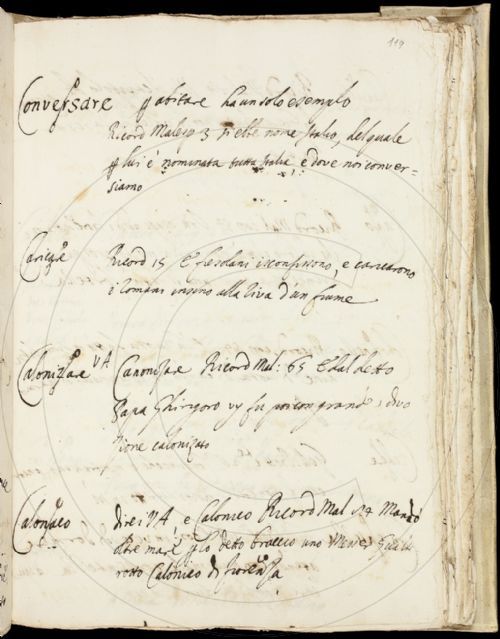 119
Conversare p abitare ha un solo esempio
Ricord Malesp 3 si ebbe nome Italo, del quale
p lui è nominata tutta Italia e dove noi conver=
siamo
Caricare Ricord 15 E fiesolani isconfissono, e carcarono
i Romani insino alla riva d'un fiume
Calonizzare VA Canonizare Ricord Mal: 65 E dal detto
Papa Ghirigoro vy fu poi con grande divo
zione calonizato
Calonaco dirsi VA, e Calonico Ricord Mal 124 Mandò
oltre mare p lo detto braccio uno Messer
rotto Calonico di Fiorenza